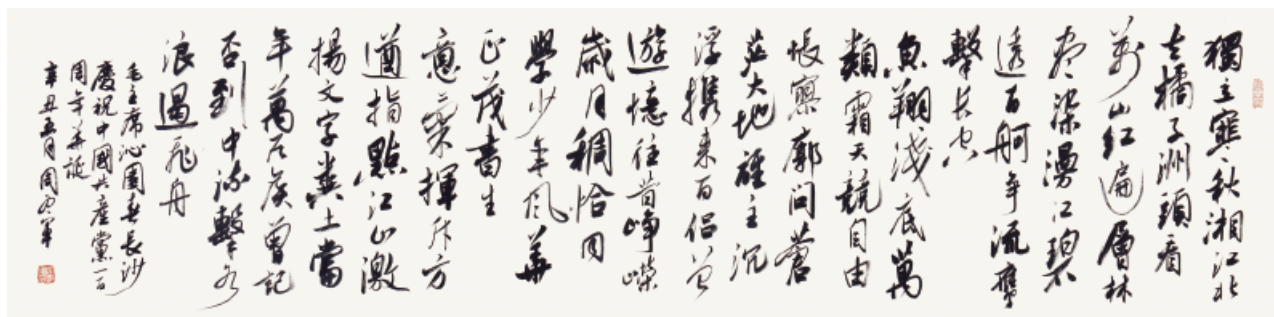 獨立寒秋湘江北
去橘子洲頭看
萬山紅遍層林
尽染漫江碧
透百舸争流鷹
擊長空
魚翔淺底萬
類霜天競自由
悵寥廓問蒼
茫大地誰主沉
浮携來百侣曾
遊憶往昔崢嶸
歲月稠恰同
學少年風華
正茂書生
意氣揮斥方
遒指點江山激
揚文字糞土當
年萬户侯曾記
否到中流擊水
浪遏飛舟
毛主席沁園春長沙
慶祝中國共産黨一百
周年華誕
辛丑五月周軍